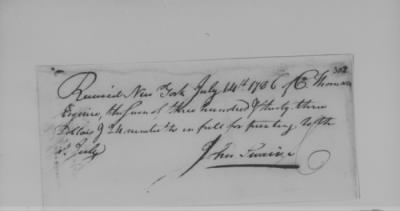 302
Received New York July 14th 1786 of C Thomson
Esquire, the Sum of three hundred & thirty three
Dollars & 24 ninetieths in full for printing to the
5. July
John